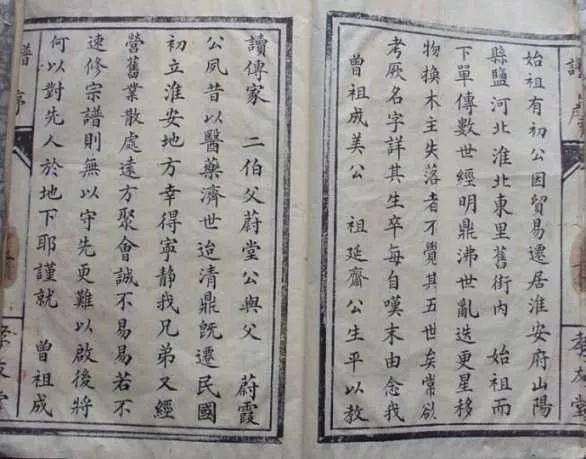 始祖有初公因貿易遷居淮安府山陽
縣鹽河北淮北東里舊街內 始祖而
下單傳數世經明鼎沸世亂迭更星移
物換木主失落者不覺其五世矣常欲
考厥名字詳其生卒每自嘆末由念我
曾祖成美公 祖延齋公生平以教
讀傳家 二伯父蔚堂公與父 蔚霞
公夙昔以醫藥濟世迨清鼎既遷民國
初立淮安地方幸得寧靜我兄弟又經
營舊業散處遠方聚會誠不易易若不
速修宗譜則無以守先更難以啟後將
何以對先人於地下耶謹就 曾祖成
譜序